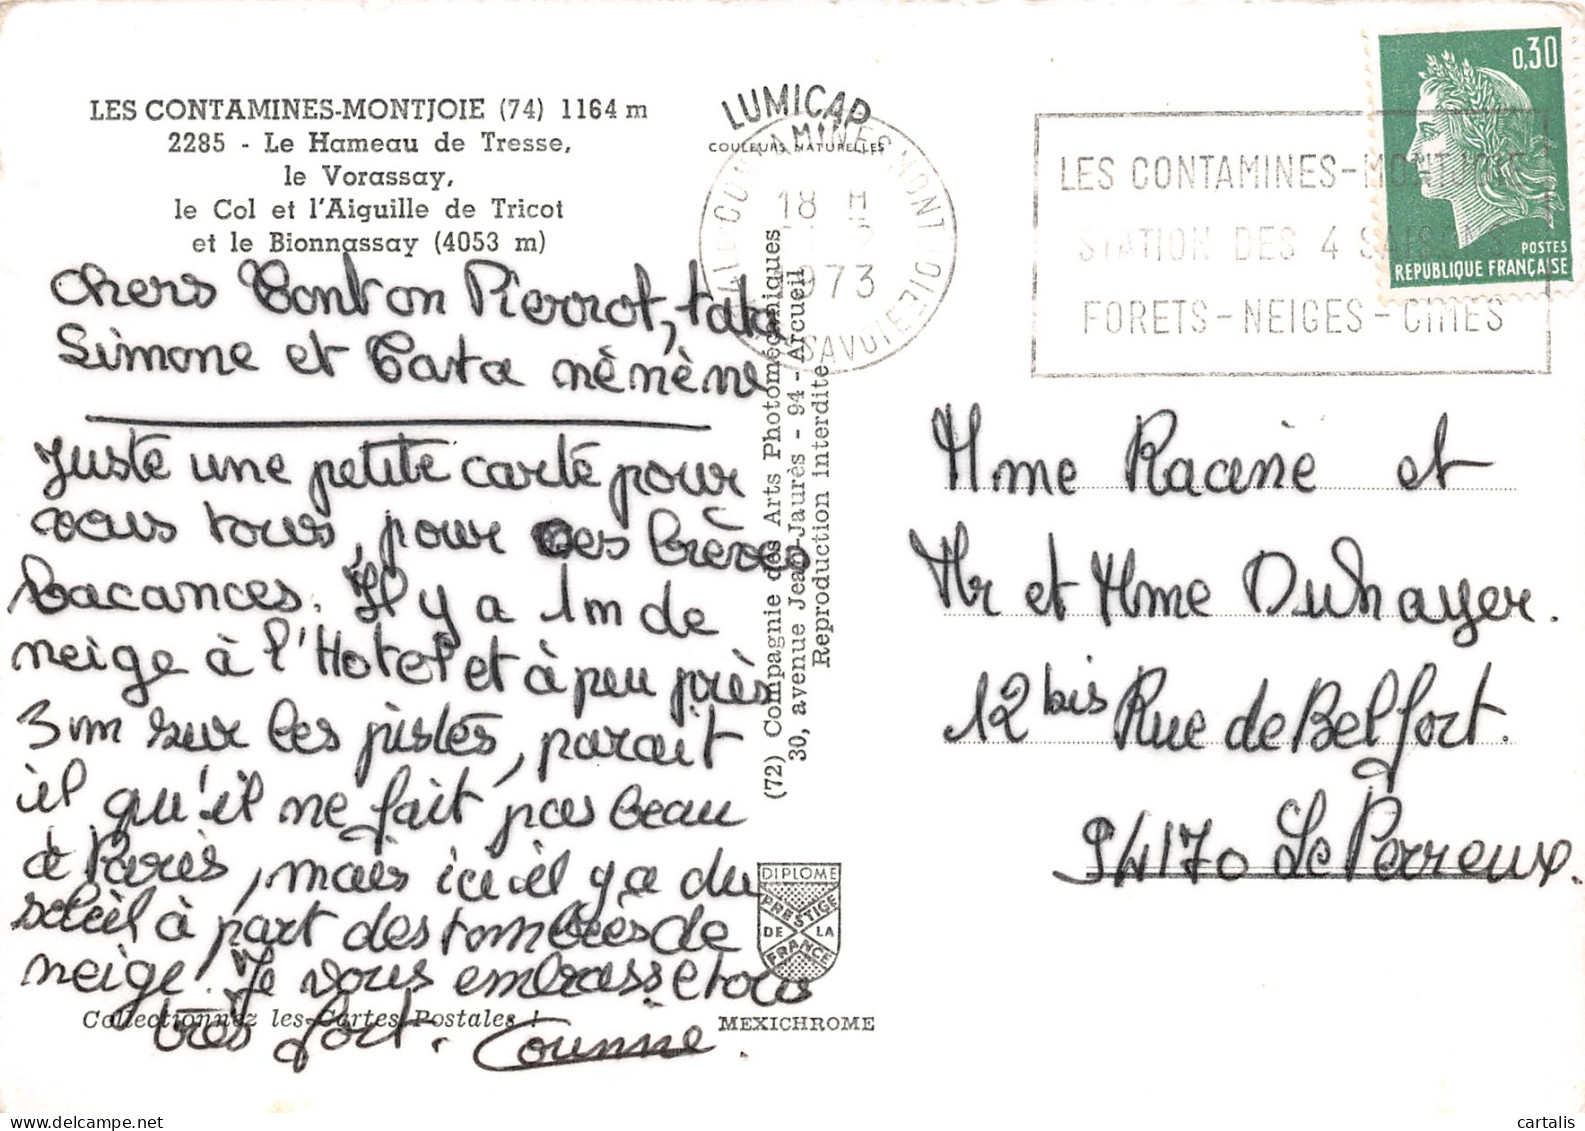 LES CONTAMINES-MONTJOIE (74) 1164 m
2285 - Le Hameau de Tresse,
le Vorassay,
le Col et l'Aiguille de Tricot
et le Bionnassay (4053 m)
LUMICAP
COULEURS NATURELLES
CONTAMINES MONTJOIE
18 H
1973
SAVOIE
LES CONTAMINES-MONTJOIE
STATION DES 4 SAISONS
FORETS-NEIGES-CIMES
0,30
POSTES
REPUBLIQUE FRANÇAISE
Chers Tonton Pierrot, tata
Simone et Tata nènène
Juste une petite carte pour
vous tous, pour ces brèves
vacances. Il y a 1m de
neige à l'Hotel et à peu près
3m sur les pistes, parait
il qu'il ne fait pas beau
à Paris, mais ici il y a du
soleil à part des tombées de
neige. Je vous embrasse tous
très fort. Corinne.
Collectionnez les Cartes Postales !
(72) Compagnie des Arts Photomécaniques
30, avenue Jean-Jaurès - 94 - Arcueil
Reproduction interdite
DIPLOME
PRESTIGE
DE LA
FRANCE
MEXICHROME
Mme Racine et
Mr et Mme Duhayer.
12 bis Rue de Belfort.
94170 Le Perreux.
cartalis